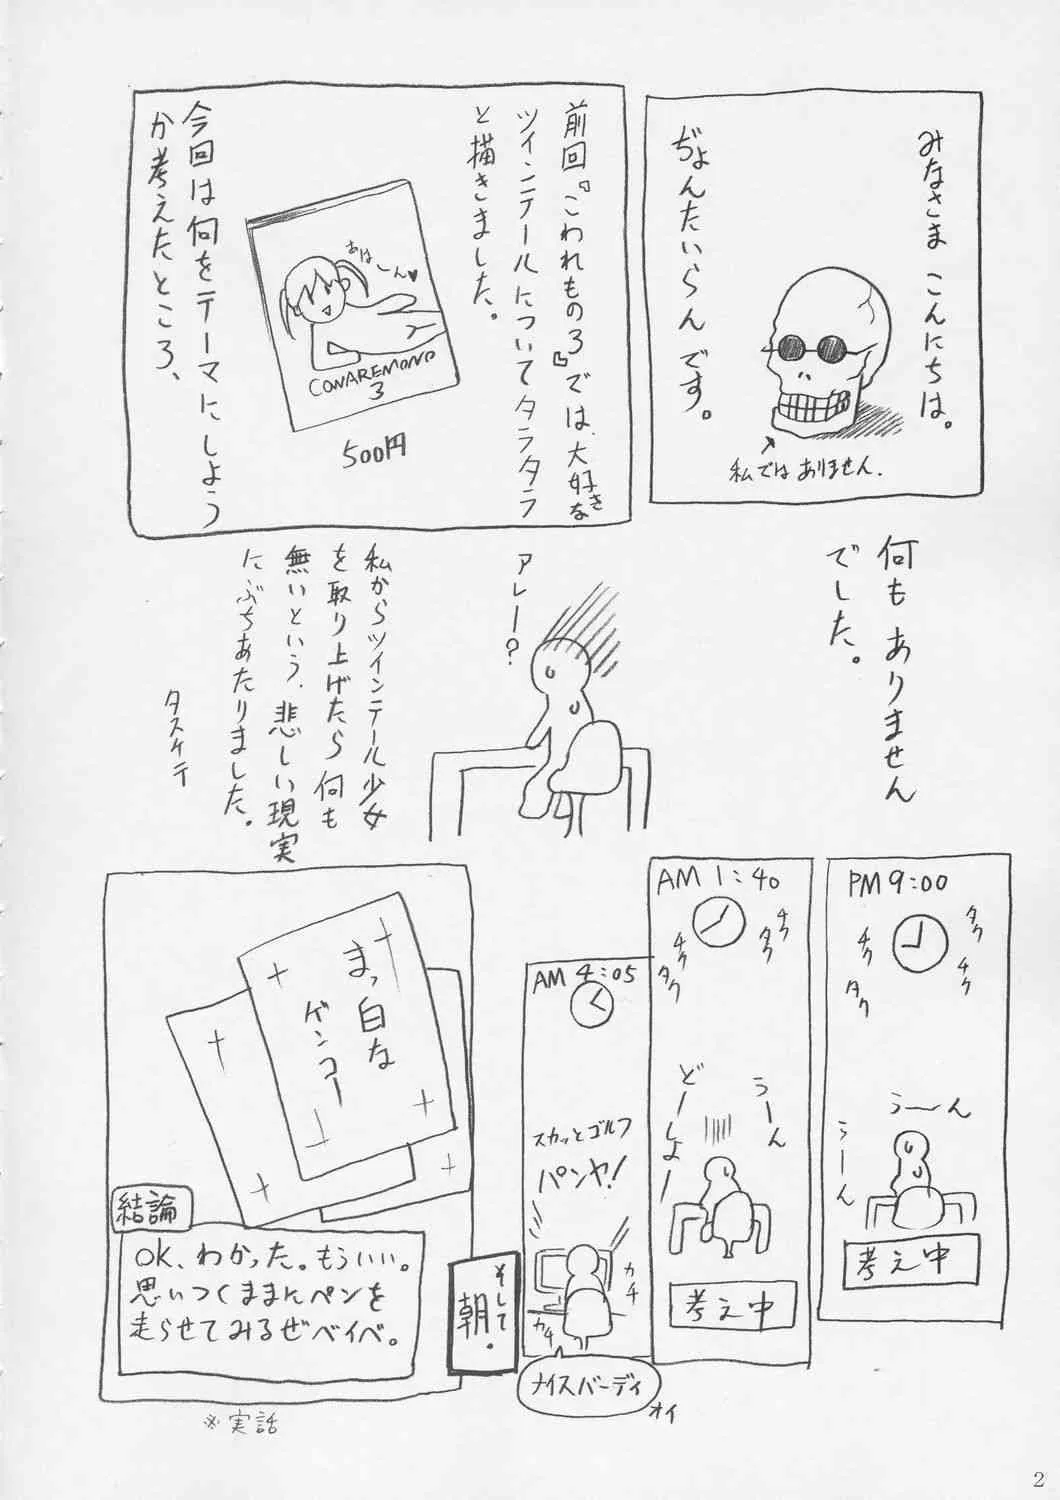 みなさま こんにちは。
ぢょんたいらんです。
私ではありません.
前回『こわれもの3』では、大好きな
ツインテールについてタラタラ
と描きました。
あはーん♥
CONAREMONO
3
500円
今回は何をテーマにしよう
か考えたところ、
何もありません
でした。
アレー?
私からツインテール少女
を取り上げたら何も
無いという、悲しい現実
にぶちあたりました。
タスケテ
PM 9:00
タク
チク
チク
タク
うーん
うーん
考え中
AM 1:40
チク
タク
チク
タク
うーん
どーしよー
考え中
AM 4:05
スカッとゴルフ
パンヤ!
カチ
カチ
ナイスバーディ
オイ
そして、
朝.
まっ白な
ゲンコー
結論
OK、わかった。もういい。
思いつくままにペンを
走らせてみるぜベイベ。
※実話
2